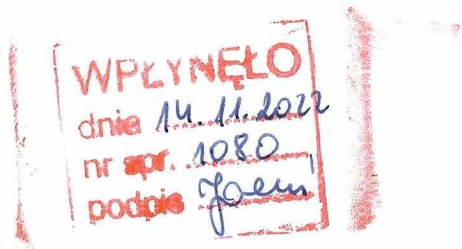 WPŁYNĘŁO
dnia 14.11.2022
nr spr. 1080
podpis